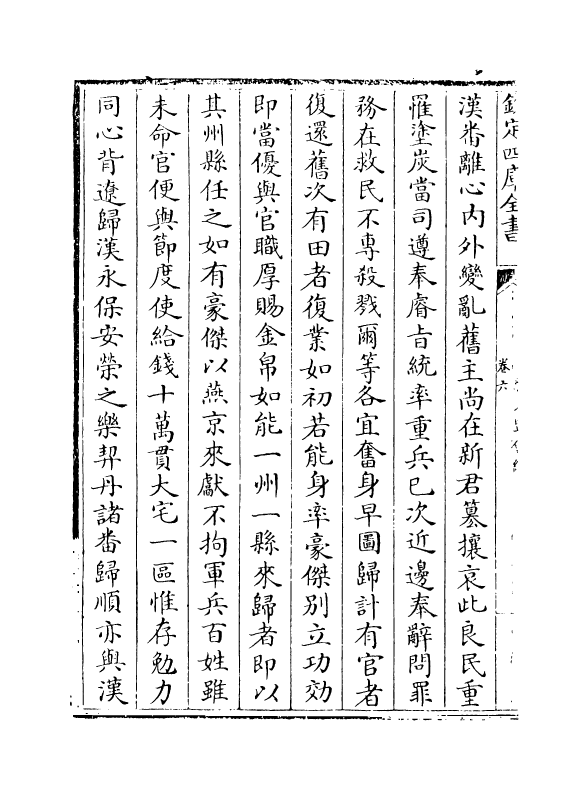 欽定四庫全書
卷六
漢畨離心内外變亂舊主尚在新君簒攘哀此良民重
罹塗炭當司遵奉睿旨統率重兵已次近邊奉辭問罪
務在救民不專殺戮爾等各宜奮身早圖歸計有官者
復還舊次有田者復業如初若能身率豪傑别立功効
即當優與官職厚賜金帛如能一州一縣來歸者即以
其州縣任之如有豪傑以燕京來獻不拘軍兵百姓雖
未命官便與節度使給錢十萬貫大宅一區惟存勉力
同心背遼歸漢永保安榮之樂契丹諸畨歸順亦與漢